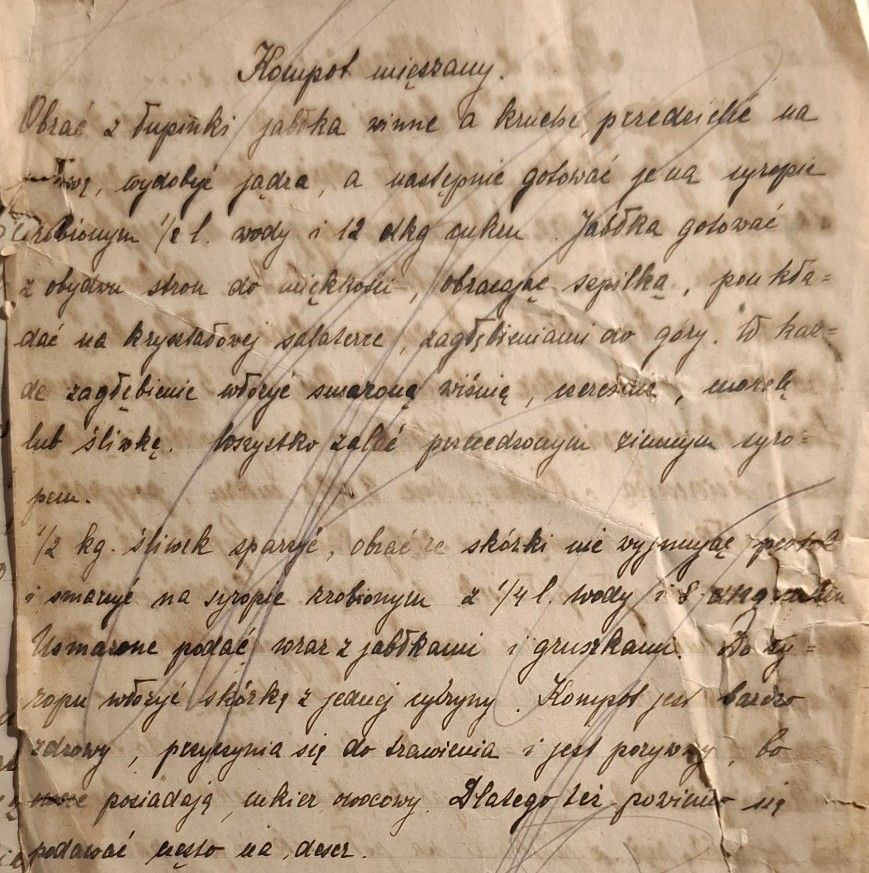 Kompot mięszany.
Obrać z łupinki jabłka winne a kruche, przedzielić na
wydobyć jądra, a następnie gotować je na syropie
zrobionym 1/2 l. wody i 12 dkg cukru. Jabłka gotować
z obydwu stron do miękkości, obracając szpilką, poukła=
dać na kryształowej salaterce, zagłębieniami do góry. W każ=
de zagłębienie włożyć smażoną wiśnię, czereśnię, morelę
lub śliwkę. Wszystko zalać przecedzonym zimnym syro=
pem.
1/2 kg. śliwek sparzyć, obrać ze skórki nie wyjmując pestek
i smażyć na syropie zrobionym z 1/4 l. wody i 8 dkg cukru
Usmażone podać wraz z jabłkami i gruszkami. Do sy=
ropu włożyć skórkę z jednej cytryny. Kompot jest bardzo
zdrowy, przyczynia się do trawienia i jest pożywny, bo
owoce posiadają cukier owocowy. Dlatego też powinno się
podawać często na deser.